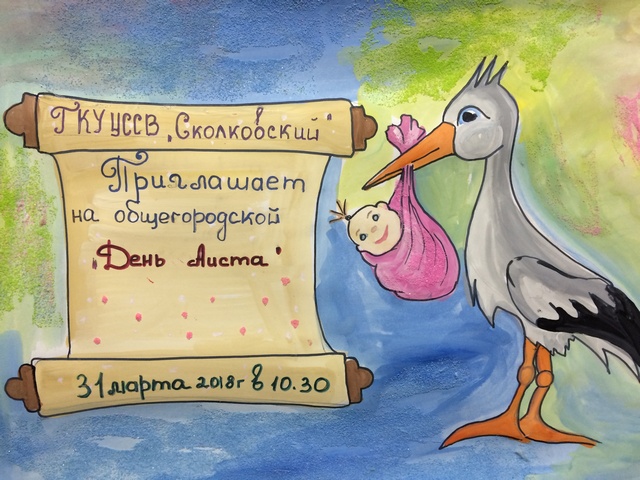 ГКУ ЦССВ „Сколковский"
Приглашает
на общегородской
„День Аиста"
31 марта 2018г в 10.30